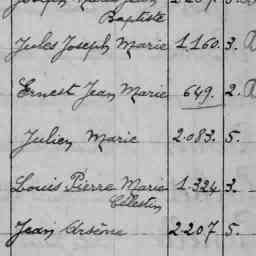 Baptiste
Jules Joseph Marie 1.160. 3.
Ernest Jean Marie 649. 2.
Julien Marie 2.083. 5.
Louis Pierre Marie 1.324 3.
Célestin
Jean Arsène 2207 5.